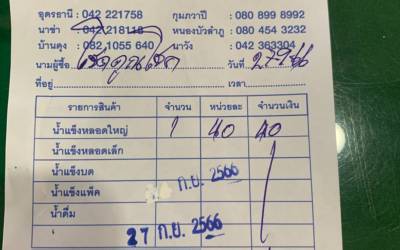 อุดรธานี : 042 221758 กุมภวาปี : 080 899 8992
นาข่า : 042 218118 หนองบัวลำภู : 080 454 3232
บ้านดุง : 082 1055 640 นาวัง : 042 363304
นามผู้ซื้อ วันที่ 27-9-66
ที่อยู่ เวลา
รายการสินค้า จำนวน หน่วยละ จำนวนเงิน
น้ำแข็งหลอดใหญ่ 1 40 40
น้ำแข็งหลอดเล็ก
น้ำแข็งบด
น้ำแข็งแพ็ค ก.ย. 2566
น้ำดื่ม
27 ก.ย. 2566